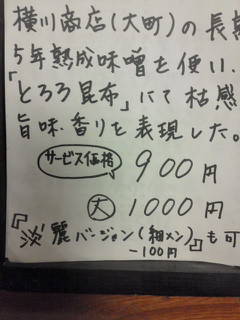 横川商店(大町)の長期
5年熟成味噌を使い、
「とろろ昆布」にて枯感
旨味・香りを表現した。
サービス価格 900円
大 1000円
『淡麗バージョン(細メン)』も可
-100円